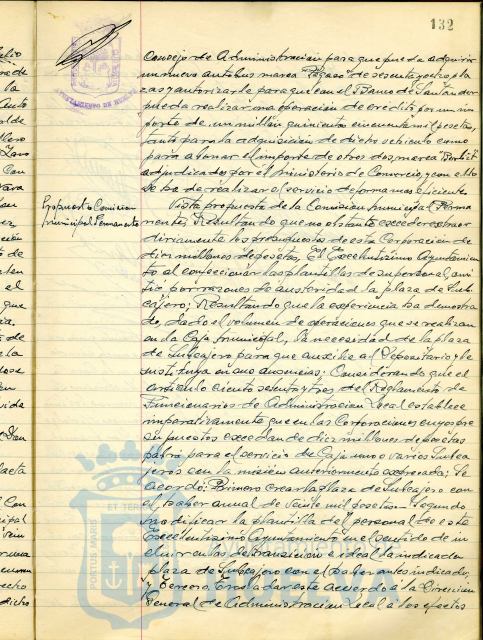 132
Consejo de Administración para que pueda adquirir
un nuevo autobus marca "Pegaso" de sesenta y ocho pla
zas y autorizarle para que con el Banco de Santander
pueda realizar una operacion de crédito por un im
porte de un millón quinientas cincuenta mil pesetas,
tanto para la adquisición de dicho vehiculo como
para abonar el importe de otros dos, marca "Berliet"
adjudicados por el Ministerio de Comercio, y con ello
se ha de realizar el servicio de forma mas eficiente
Propuesta Comision
municipal Permanente
Vista propuesta de la Comisión municipal Perma
nente; Resultando que no obstante exceder extraor
dinariamente los presupuestos de esta Corporacion de
diez millones de pesetas, el Excelentisimo Ayuntamien
to al confeccionar las plantillas de su personal, omi
tió por razones de austeridad la plaza de Sub
cajero; Resultando que la experiencia ha demostra
do, dado el volumen de operaciones que se realizan
en la Caja municipal, la necesidad de la plaza
de Subcajero para que auxilie al Depositario y le
sustituya en sus ausencias; Considerando que el
articulo ciento sesenta y tres del Reglamento de
Funcionarios de Administración Local establece
imperativamente que en las Corporaciones cuyos pre
supuestos excedan de diez millones de pesetas
habrá para el servicio de Caja uno o varios Subca
jeros con la misión anteriormente expresada; Se
acordó: Primero crear la plaza de Subcajero con
el haber anual de veinte mil pesetas - Segundo
modificar la plantilla del personal de este
Excelentisimo Ayuntamiento en el sentido de in
cluir en las de transicion e ideal la indicada
plaza de Subcajero con el haber antes indicado;
y Tercero, Trasladar este acuerdo a la Direccion
General de Administración Local a los efectos
AYUNTAMIENTO DE HUELVA
PORTUS MARIS ET TERRAE